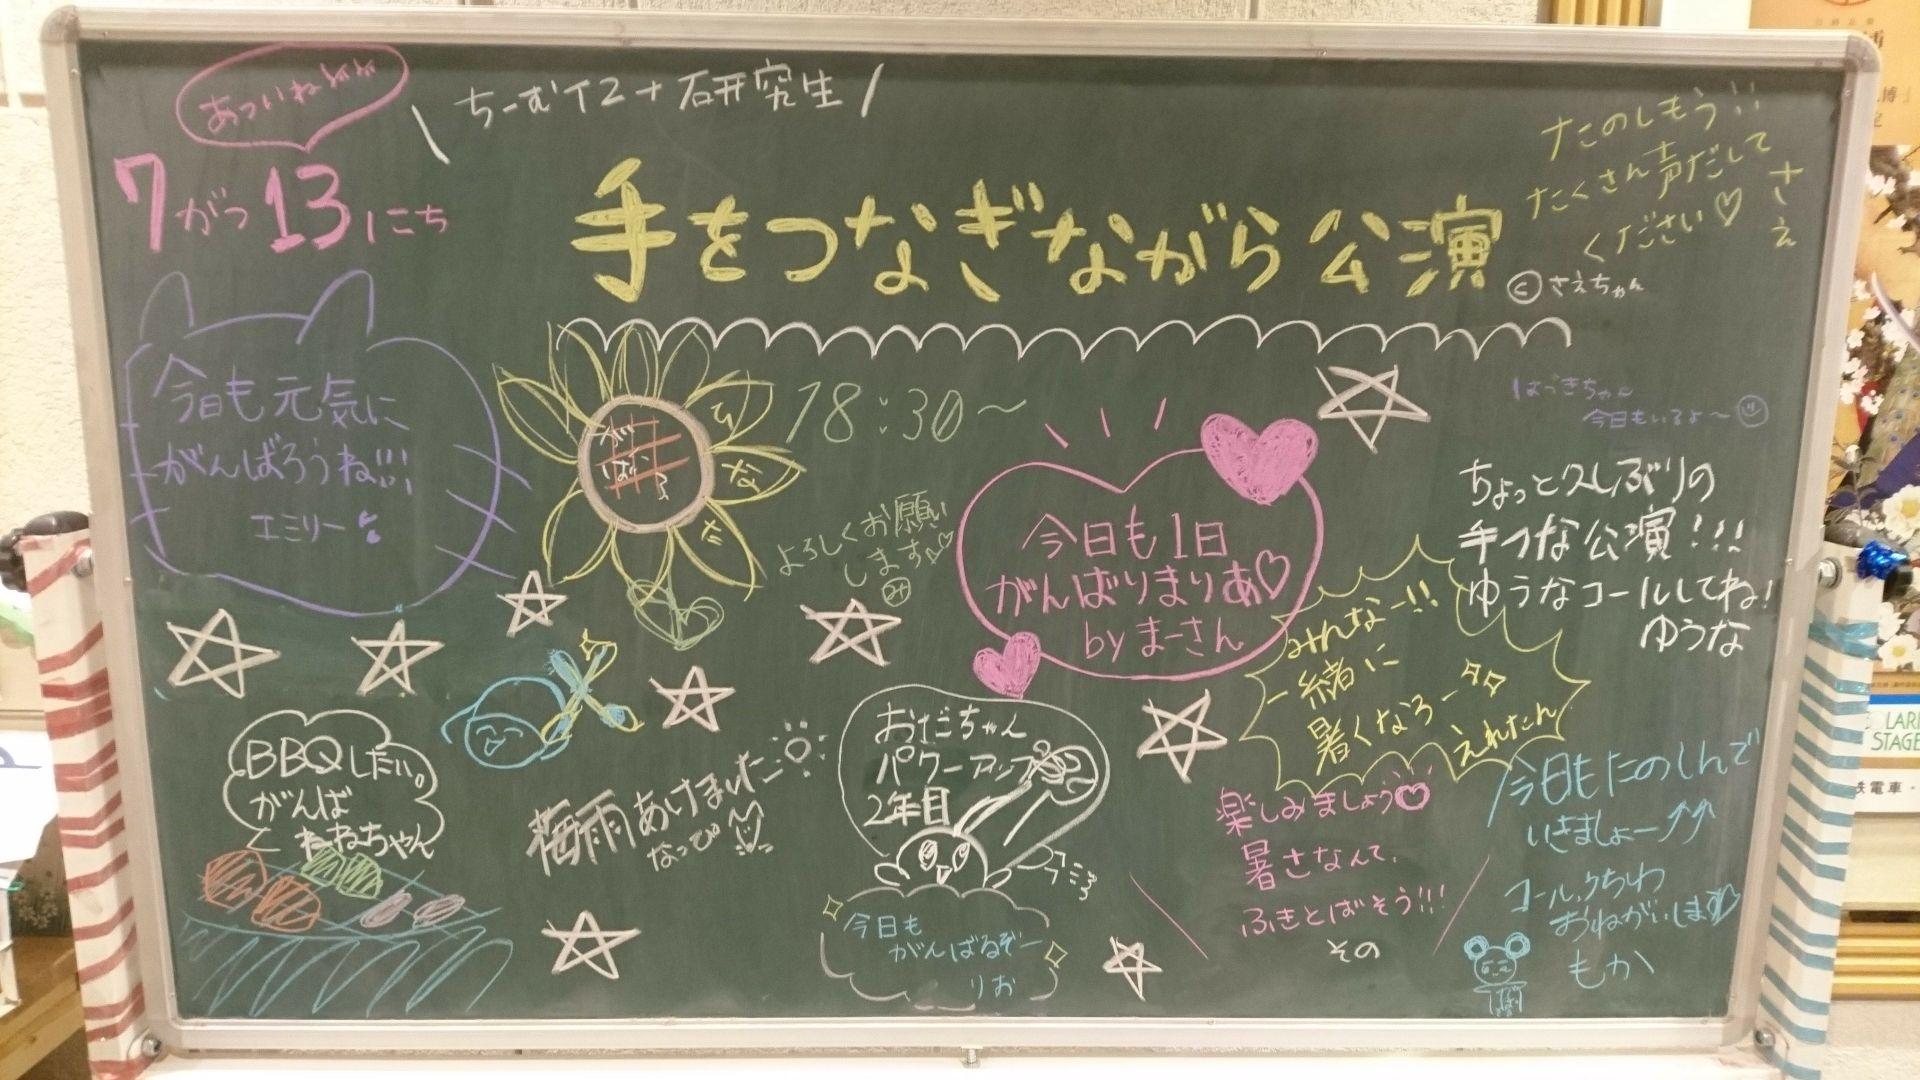 あついね
\ ちーむT2+研究生 /
7がつ13にち
手をつなぎながら公演
たのしもう!!
たくさん声だして
ください♡
さえ
©さえちゃん
今日も元気に
がんばろうね!!!
エミリー♪
ひ
な
た
18:30〜
よろしくお願い
します
はづきちゃん
今日もいるよ〜
ちょっと久しぶりの
手つな公演!!!
ゆうなコールしてね!
ゆうな
今日も1日
がんばりまりあ♡
byまーさん
みんなー!!
一緒に
暑くなろー
えれたん
BBQしたい。
がんば
ねねちゃん
梅雨あけました
なっぴ〜
おだちゃん
パワーアップ
2年目
今日も
がんばるぞー
りお
楽しみましょう♡
暑さなんて、
ふきとばそう!!!
その
今日もたのしんで
いきましょー↑↑
コール、うちわ
おねがいします♡
もか
LAR
STAGE
鉄電車